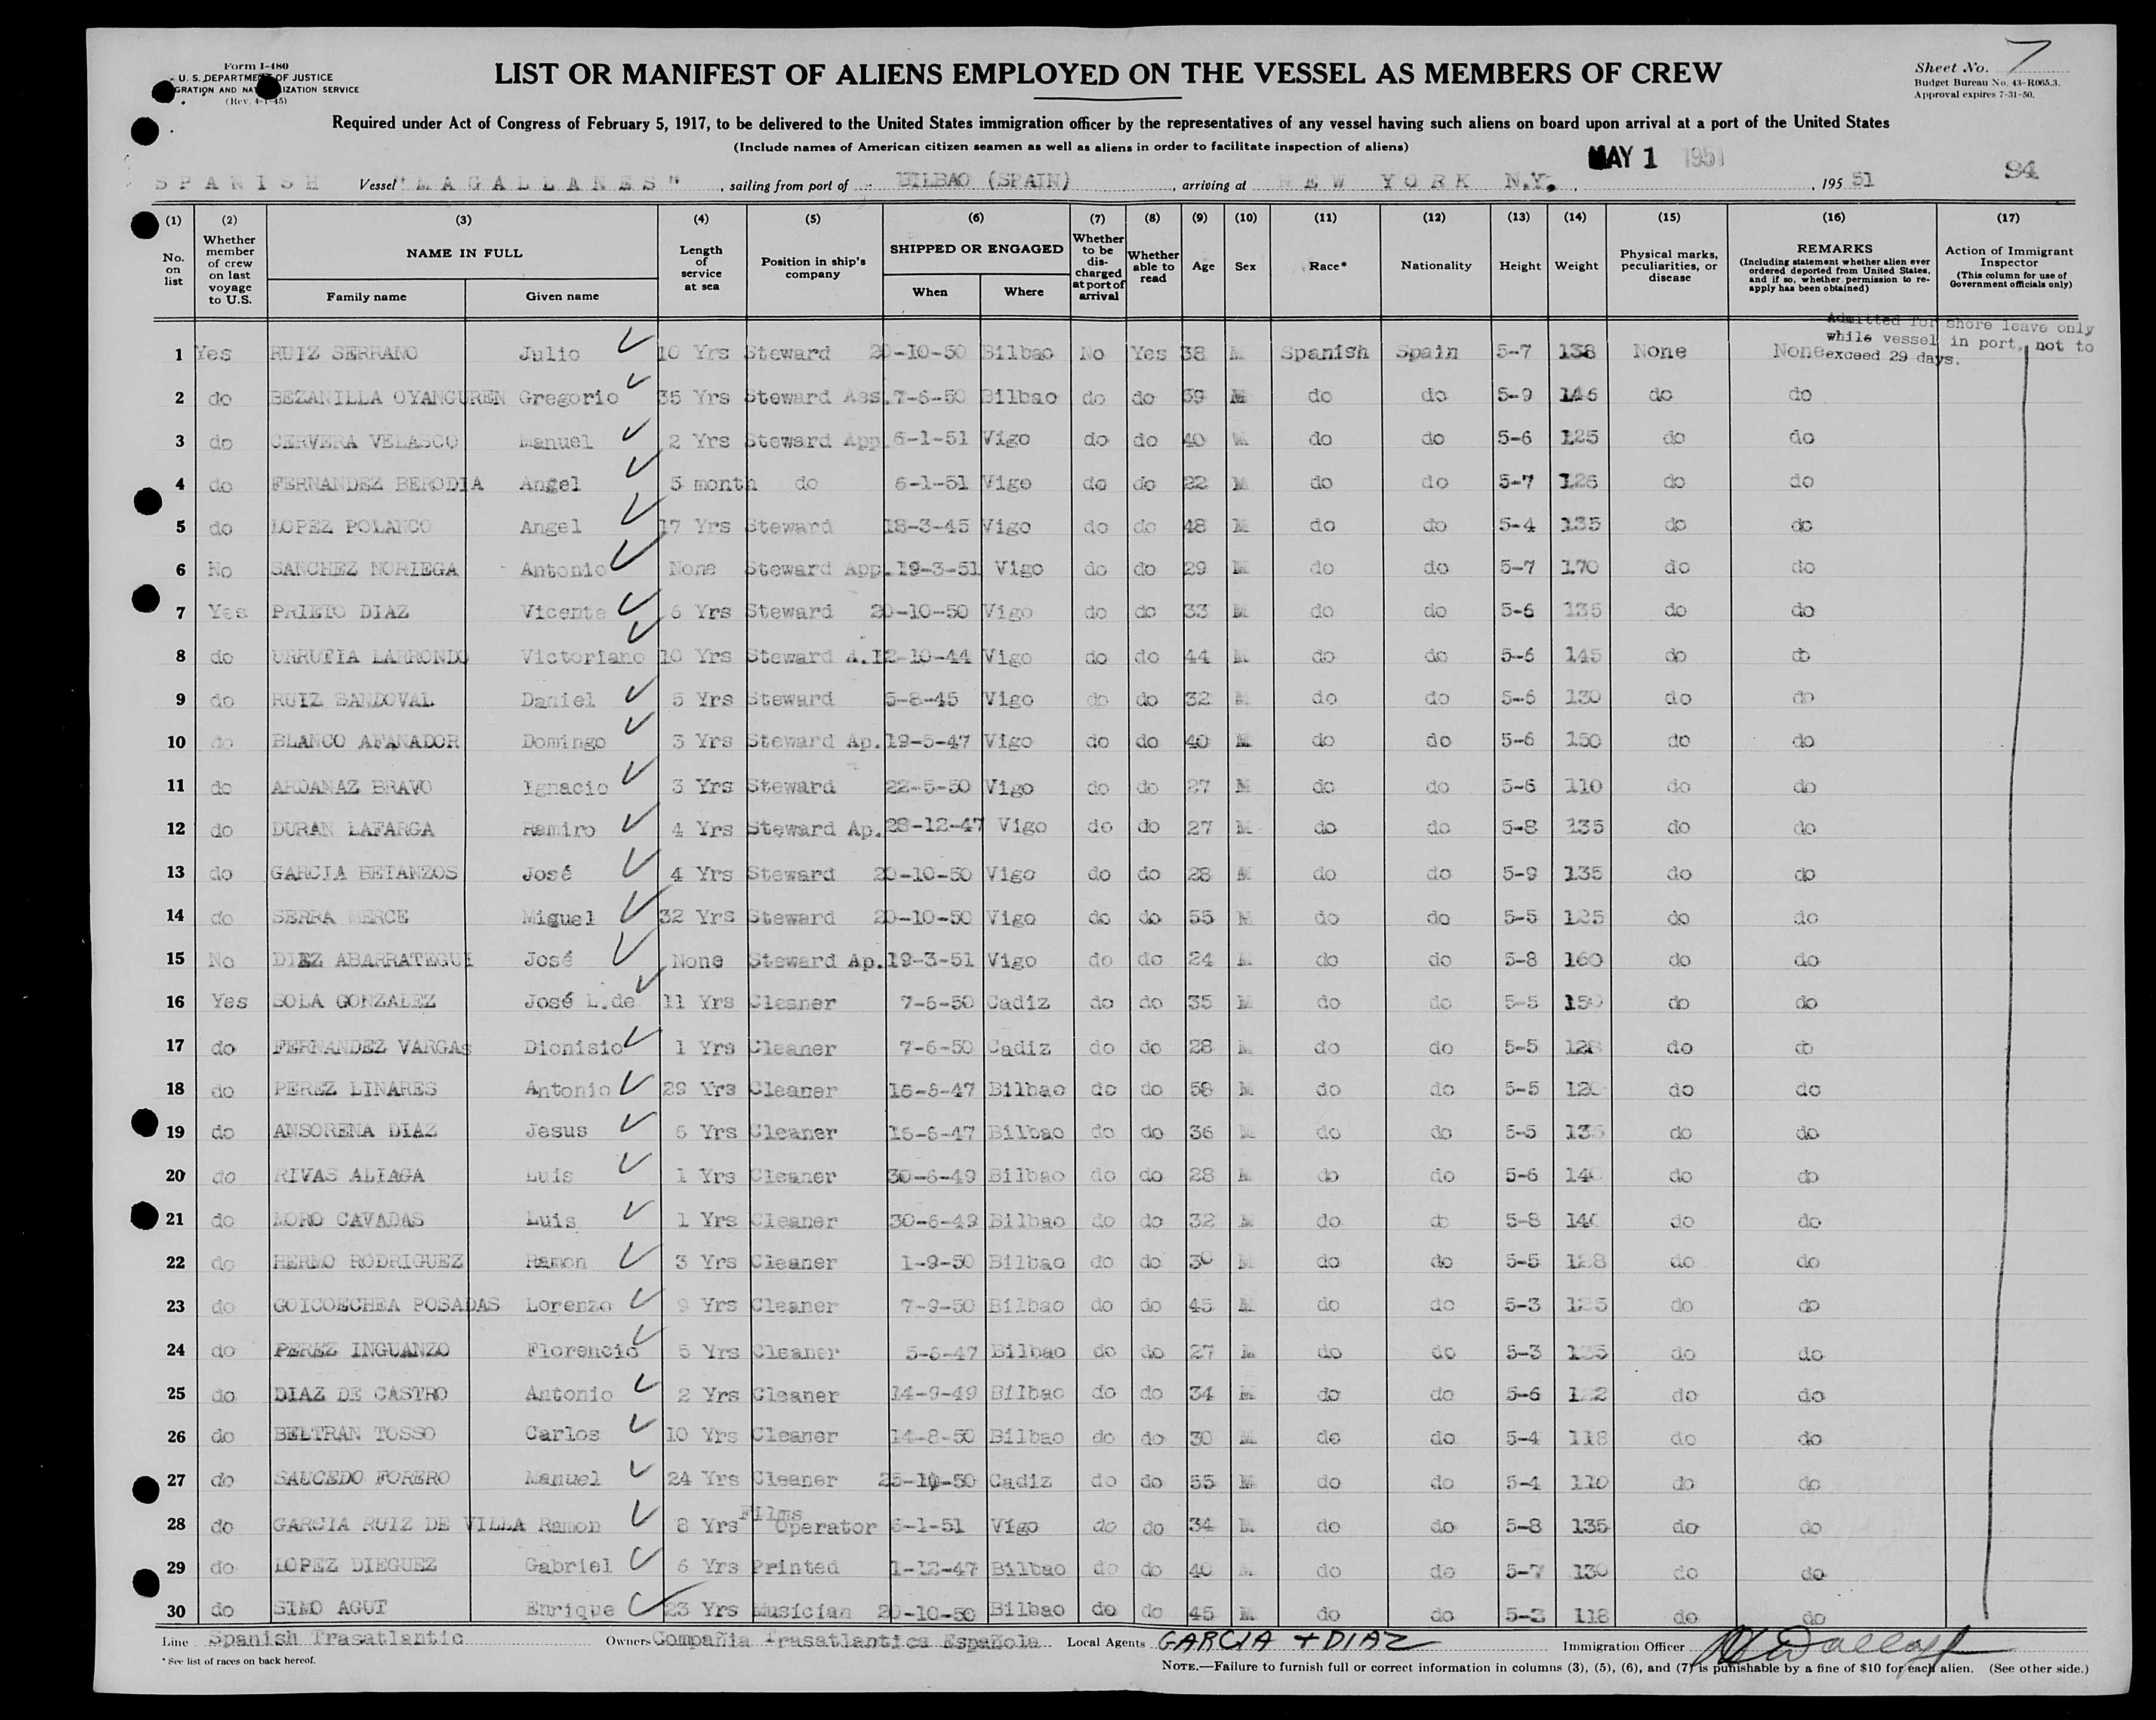 Form I-480
U. S. DEPARTMENT OF JUSTICE
IMMIGRATION AND NATURALIZATION SERVICE
(Rev. 4-1-45)
LIST OR MANIFEST OF ALIENS EMPLOYED ON THE VESSEL AS MEMBERS OF CREW
Sheet No. 7
Budget Bureau No. 43-R065.3.
Approval expires 7-31-50.
Required under Act of Congress of February 5, 1917, to be delivered to the United States immigration officer by the representatives of any vessel having such aliens on board upon arrival at a port of the United States
(Include names of American citizen seamen as well as aliens in order to facilitate inspection of aliens)
MAY 1 1951
94
SPANISH Vessel "MAGALLANES", sailing from port of BILBAO (SPAIN), arriving at NEW YORK N.Y., 195 51
(1) (2) (3) (4) (5) (6) (7) (8) (9) (10) (11) (12) (13) (14) (15) (16) (17)
No. on list
Whether member of crew on last voyage to U.S.
NAME IN FULL
Family name
Given name
Length of service at sea
Position in ship's company
SHIPPED OR ENGAGED
When
Where
Whether to be discharged at port of arrival
Whether able to read
Age
Sex
Race*
Nationality
Height
Weight
Physical marks, peculiarities, or disease
REMARKS
(Including statement whether alien ever ordered deported from United States, and if so, whether permission to reapply has been obtained)
Action of Immigrant Inspector
(This column for use of Government officials only)
Admitted for shore leave only
while vessel in port, not to
exceed 29 days.
1 Yes RUIZ SERRANO Julio 10 Yrs Steward 20-10-50 Bilbao No Yes 38 M Spanish Spain 5-7 138 None None
2 do BEZANILLA OYANGUREN Gregorio 35 Yrs Steward Ass. 7-6-50 Bilbao do do 59 M do do 5-9 146 do do
3 do CERVERA VELASCO Manuel 2 Yrs Steward App 6-1-51 Vigo do do 40 M do do 5-6 125 do do
4 do FERNANDEZ BERODIA Angel 5 month do 6-1-51 Vigo do do 22 M do do 5-7 126 do do
5 do LOPEZ POLANCO Angel 17 Yrs Steward 18-3-45 Vigo do do 48 M do do 5-4 135 do do
6 No SANCHEZ NORIEGA Antonio None Steward App. 19-3-51 Vigo do do 29 M do do 5-7 170 do do
7 Yes PRIETO DIAZ Vicente 6 Yrs Steward 20-10-50 Vigo do do 33 M do do 5-6 135 do do
8 do URRUTIA LARRONDO Victoriano 10 Yrs Steward A. 12-10-44 Vigo do do 44 M do do 5-6 145 do do
9 do RUIZ SANDOVAL Daniel 5 Yrs Steward 5-8-45 Vigo do do 32 M do do 5-6 130 do do
10 do BLANCO AFANADOR Domingo 3 Yrs Steward Ap. 19-5-47 Vigo do do 40 M do do 5-6 150 do do
11 do ARDANAZ BRAVO Ignacio 3 Yrs Steward 22-5-50 Vigo do do 27 M do do 5-6 110 do do
12 do DURAN LAFARGA Ramiro 4 Yrs Steward Ap. 28-12-47 Vigo do do 27 M do do 5-8 135 do do
13 do GARCIA BETANZOS José 4 Yrs Steward 20-10-50 Vigo do do 28 M do do 5-9 135 do do
14 do SERRA MERCE Miguel 32 Yrs Steward 20-10-50 Vigo do do 55 M do do 5-5 125 do do
15 No DIEZ ABARRATEGUI José None Steward Ap. 19-3-51 Vigo do do 24 M do do 5-8 160 do do
16 Yes SOLA GONZALEZ José L.de 11 Yrs Cleaner 7-6-50 Cadiz do do 35 M do do 5-5 150 do do
17 do FERNANDEZ VARGAS Dionisio 1 Yrs Cleaner 7-6-50 Cadiz do do 28 M do do 5-5 128 do do
18 do PEREZ LINARES Antonio 29 Yrs Cleaner 16-6-47 Bilbao do do 58 M do do 5-5 120 do do
19 do ANSORENA DIAZ Jesus 6 Yrs Cleaner 16-6-47 Bilbao do do 36 M do do 5-5 135 do do
20 do RIVAS ALIAGA Luis 1 Yrs Cleaner 30-6-49 Bilbao do do 28 M do do 5-6 140 do do
21 do MORO CAVADAS Luis 1 Yrs Cleaner 30-6-49 Bilbao do do 32 M do do 5-8 140 do do
22 do HERMO RODRIGUEZ Ramon 3 Yrs Cleaner 1-9-50 Bilbao do do 30 M do do 5-5 128 do do
23 do GOICOECHEA POSADAS Lorenzo 9 Yrs Cleaner 7-9-50 Bilbao do do 45 M do do 5-3 125 do do
24 do PEREZ INGUANZO Florencio 5 Yrs Cleaner 5-6-47 Bilbao do do 27 M do do 5-3 135 do do
25 do DIAZ DE CASTRO Antonio 2 Yrs Cleaner 14-9-49 Bilbao do do 34 M do do 5-6 122 do do
26 do BELTRAN TOSSO Carlos 10 Yrs Cleaner 14-8-50 Bilbao do do 30 M do do 5-4 118 do do
27 do SAUCEDO FORERO Manuel 24 Yrs Cleaner 25-10-50 Cadiz do do 55 M do do 5-4 110 do do
28 do GARCIA RUIZ DE VILLA Ramon 8 Yrs Films Operator 6-1-51 Vigo do do 34 M do do 5-8 135 do do
29 do LOPEZ DIEGUEZ Gabriel 6 Yrs Printed 1-12-47 Bilbao do do 40 M do do 5-7 130 do do
30 do SIMO AGUT Enrique 23 Yrs Musician 20-10-50 Bilbao do do 45 M do do 5-3 118 do do
Line Spanish Trasatlantic Owners Compañia Trasatlantica Española Local Agents GARCIA + DIAZ Immigration Officer
* See list of races on back hereof.
NOTE.—Failure to furnish full or correct information in columns (3), (5), (6), and (7) is punishable by a fine of $10 for each alien. (See other side.)